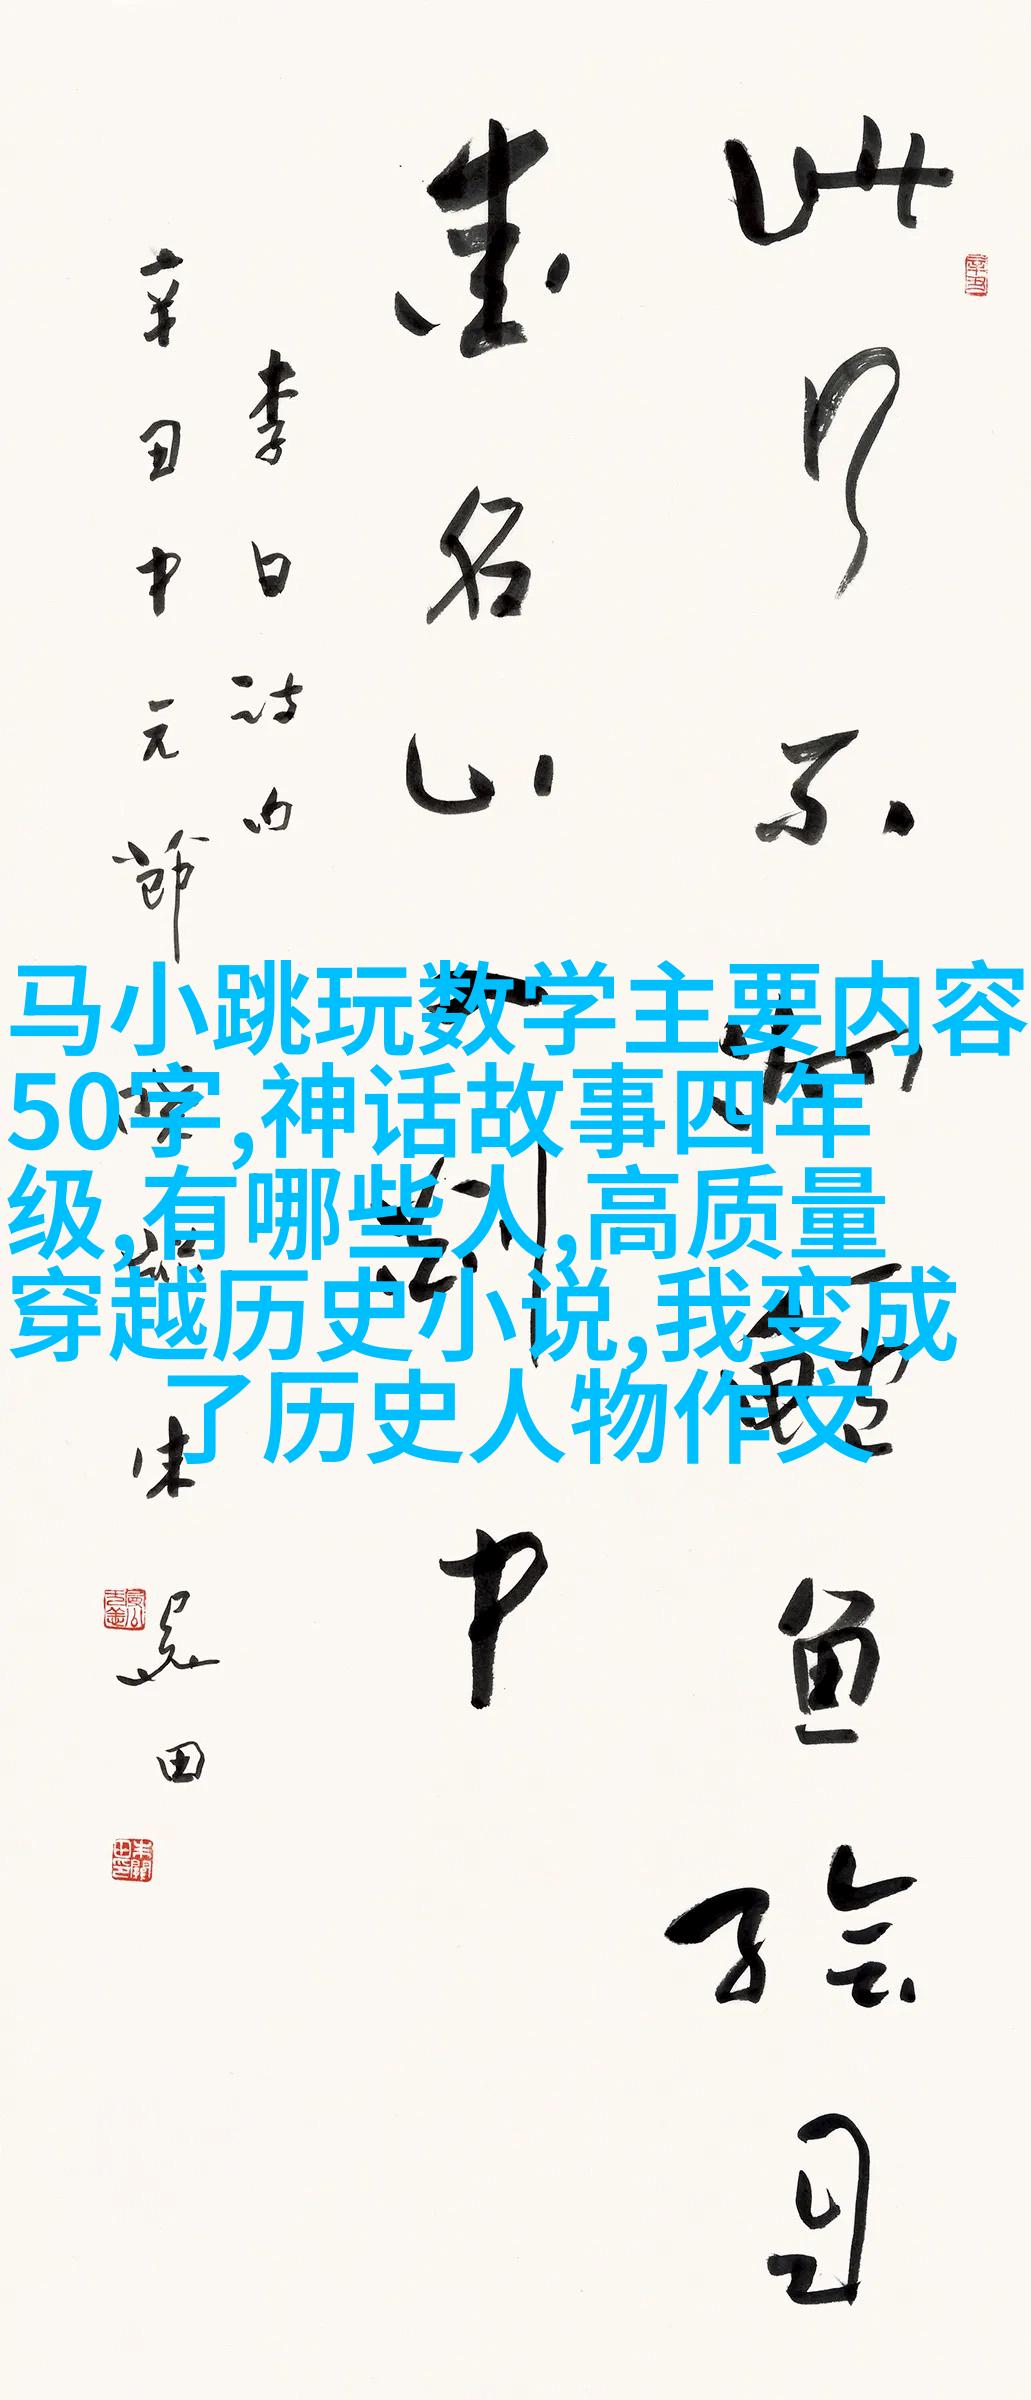 此行不为鲈鱼鲙自
爱名山入剡中
李白诗句
辛丑中元节
朱关田
马小跳玩数学主要内容
50字,神话故事四年
级,有哪些人,高质量
穿越历史小说,我变成
了历史人物作文